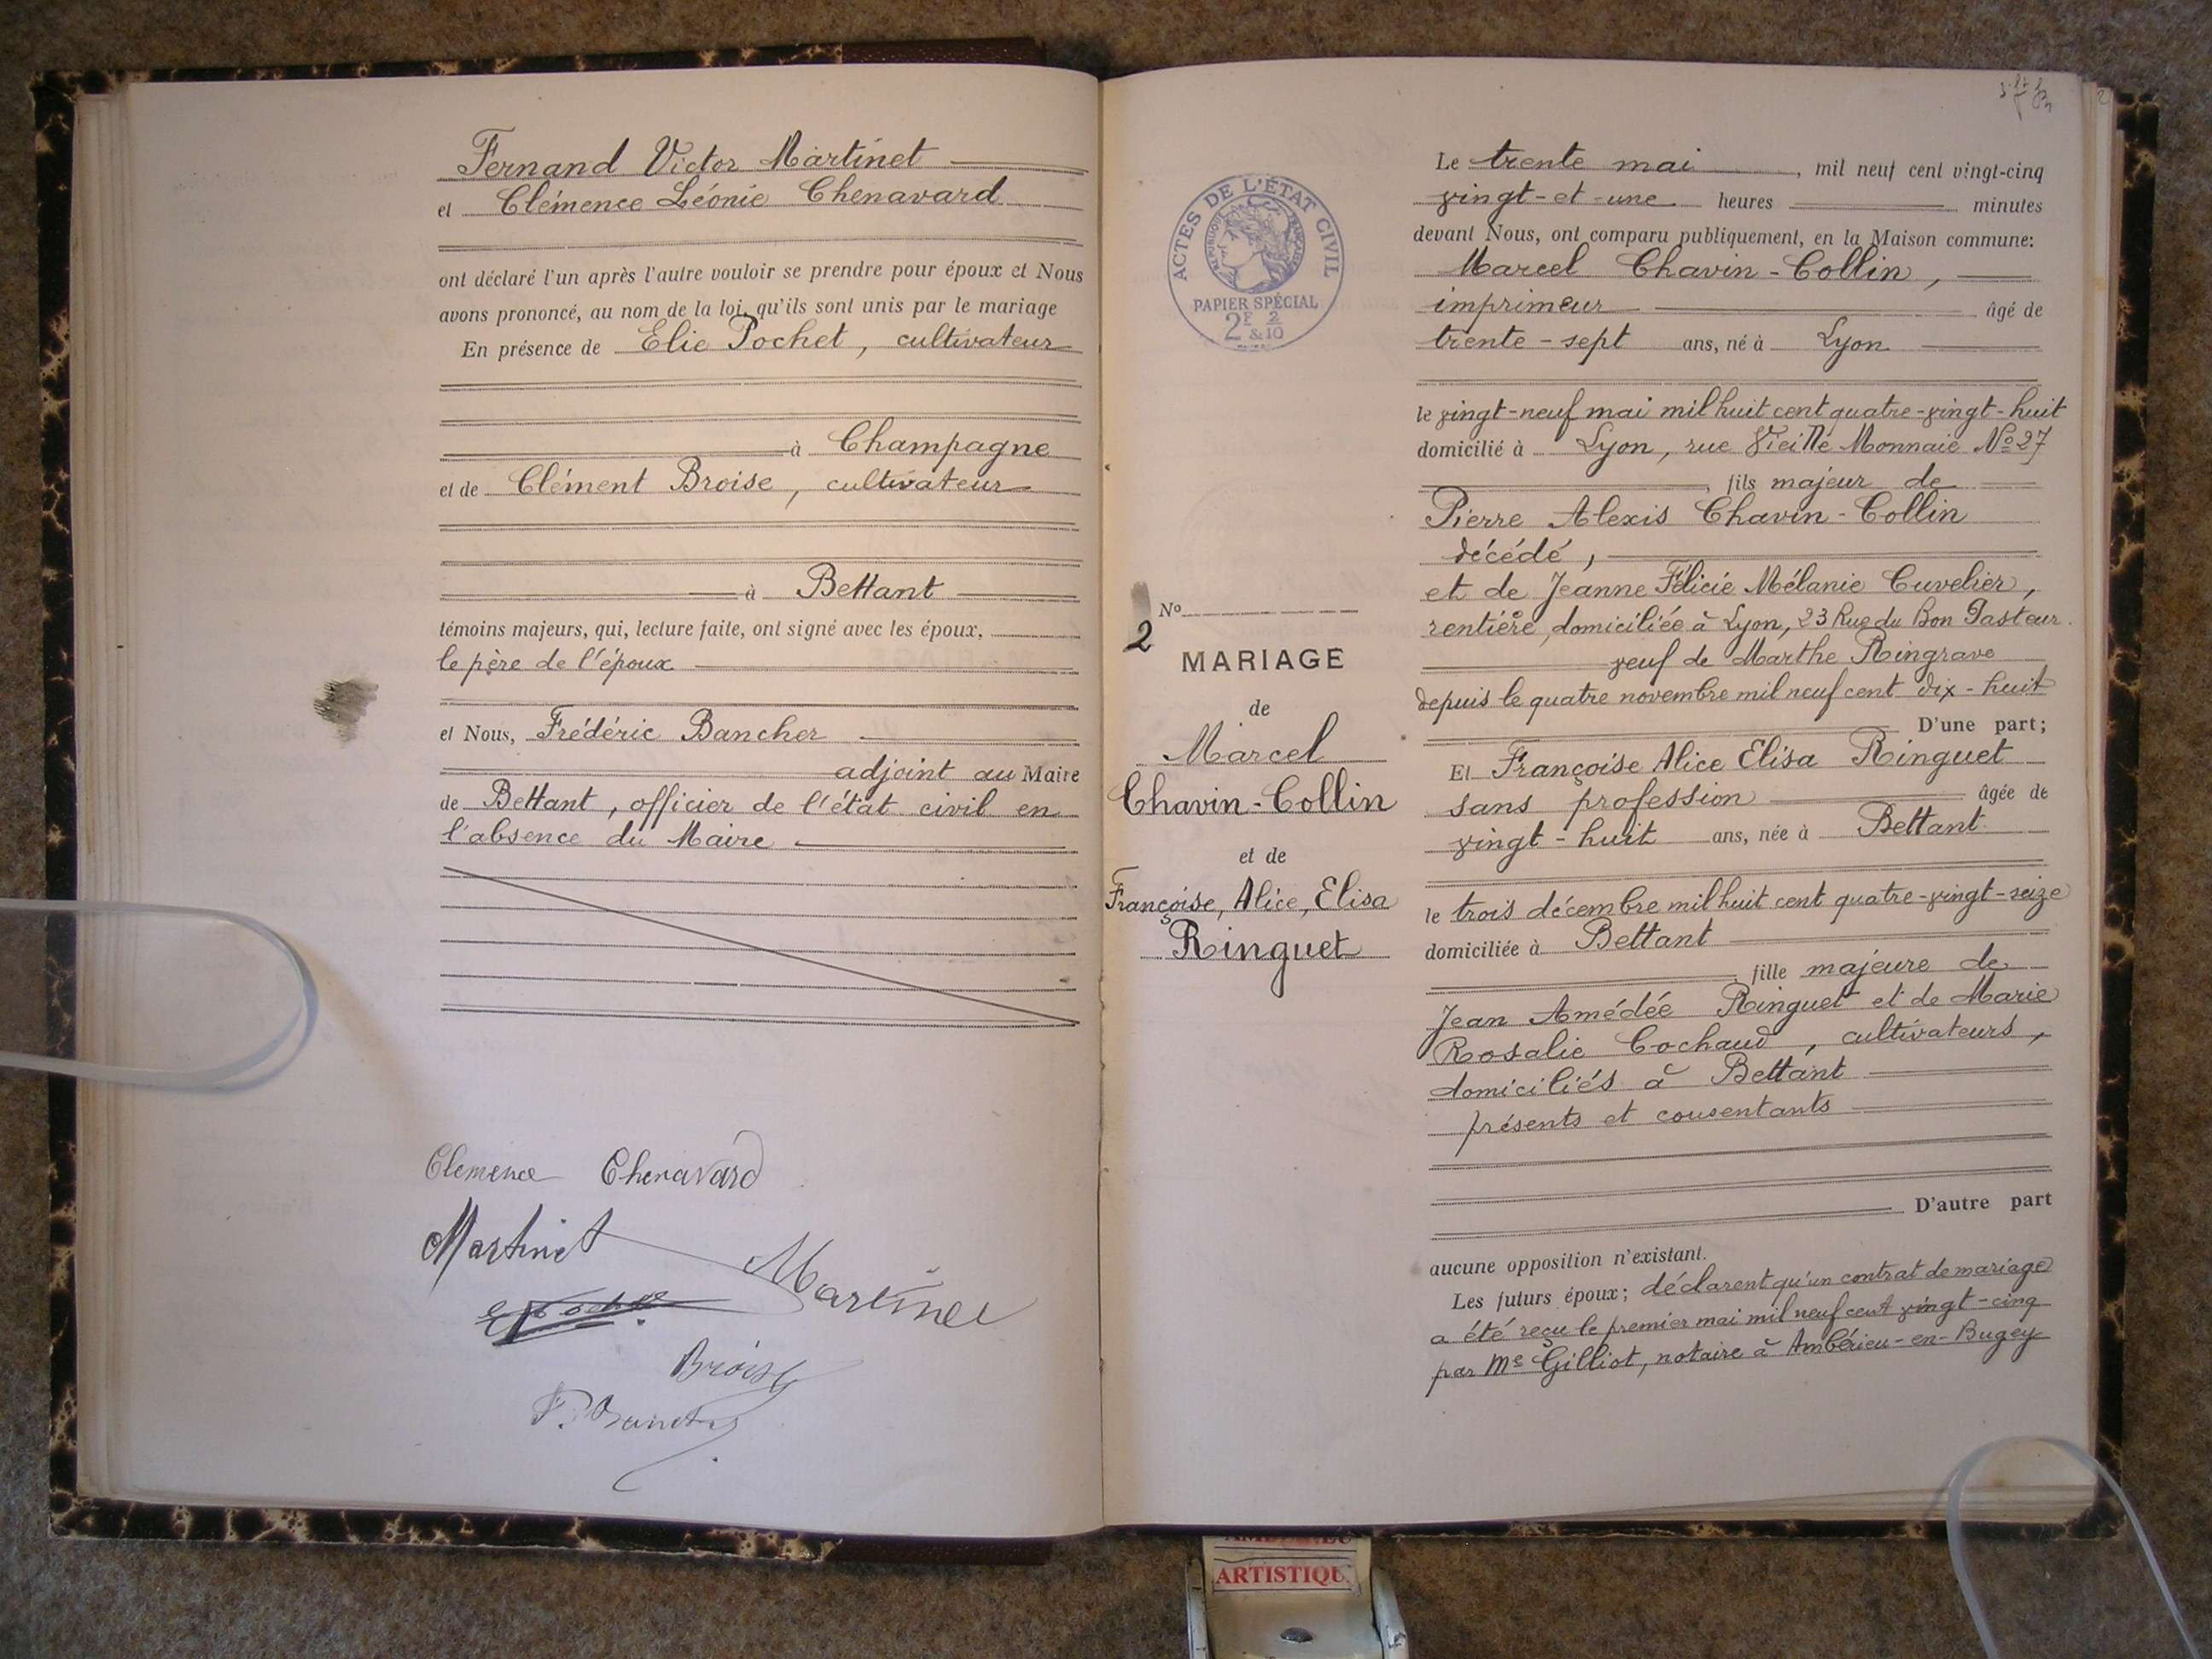 Fernand Victor Martinet
et Clémence Léonie Chenavard
ont déclaré l'un après l'autre vouloir se prendre pour époux et Nous
avons prononcé, au nom de la loi, qu'ils sont unis par le mariage
En présence de Elie Pochet, cultivateur
à Champagne
et de Clément Broise, cultivateur
à Bettant
témoins majeurs, qui, lecture faite, ont signé avec les époux,
le père de l'époux
et Nous, Frédéric Bancher
adjoint au Maire
de Bettant, officier de l'état civil en
l'absence du Maire
Clemence Chenavard
Martinet
Martinet
Broise
ACTES DE L'ÉTAT CIVIL
RÉPUBLIQUE FRANÇAISE
PAPIER SPÉCIAL
2F 2
& 10
No
2
MARIAGE
de
Marcel
Chavin-Collin
et de
Françoise, Alice, Elisa
Ringuet
2
Le trente mai, mil neuf cent vingt-cinq
vingt-et-une heures minutes
devant Nous, ont comparu publiquement, en la Maison commune:
Marcel Chavin-Collin,
imprimeur âgé de
trente-sept ans, né à Lyon
le vingt-neuf mai mil huit cent quatre-vingt-huit
domicilié à Lyon, rue Vieille Monnaie No 27
, fils majeur de
Pierre Alexis Chavin-Collin
décédé,
et de Jeanne Félicie Mélanie Cuvelier,
rentière, domiciliée à Lyon, 23 Rue du Bon Pasteur.
veuf de Marthe Ringrave
depuis le quatre novembre mil neuf cent dix-huit
D'une part;
Et Françoise Alice Elisa Ringuet
sans profession âgée de
vingt-huit ans, née à Bettant
le trois décembre mil huit cent quatre-vingt-seize
domiciliée à Bettant
, fille majeure de
Jean Amédée Ringuet et de Marie
Rosalie Cochaud, cultivateurs,
domiciliés à Bettant
présents et consentants
D'autre part
aucune opposition n'existant.
Les futurs époux; déclarent qu'un contrat de mariage
a été reçu le premier mai mil neuf cent vingt-cinq
par Me Gilliot, notaire à Ambérieu-en-Bugey
ARTISTIQU